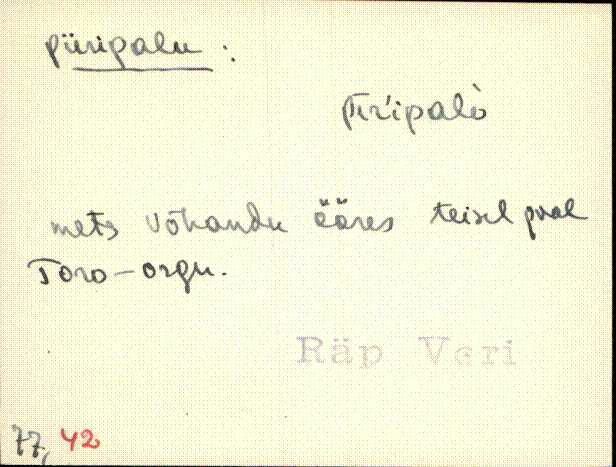 püüripalu :
pīŕipalò
mets Võhandu ääres teisel pool
Toro-orgu.
Räp Veri
77, 42